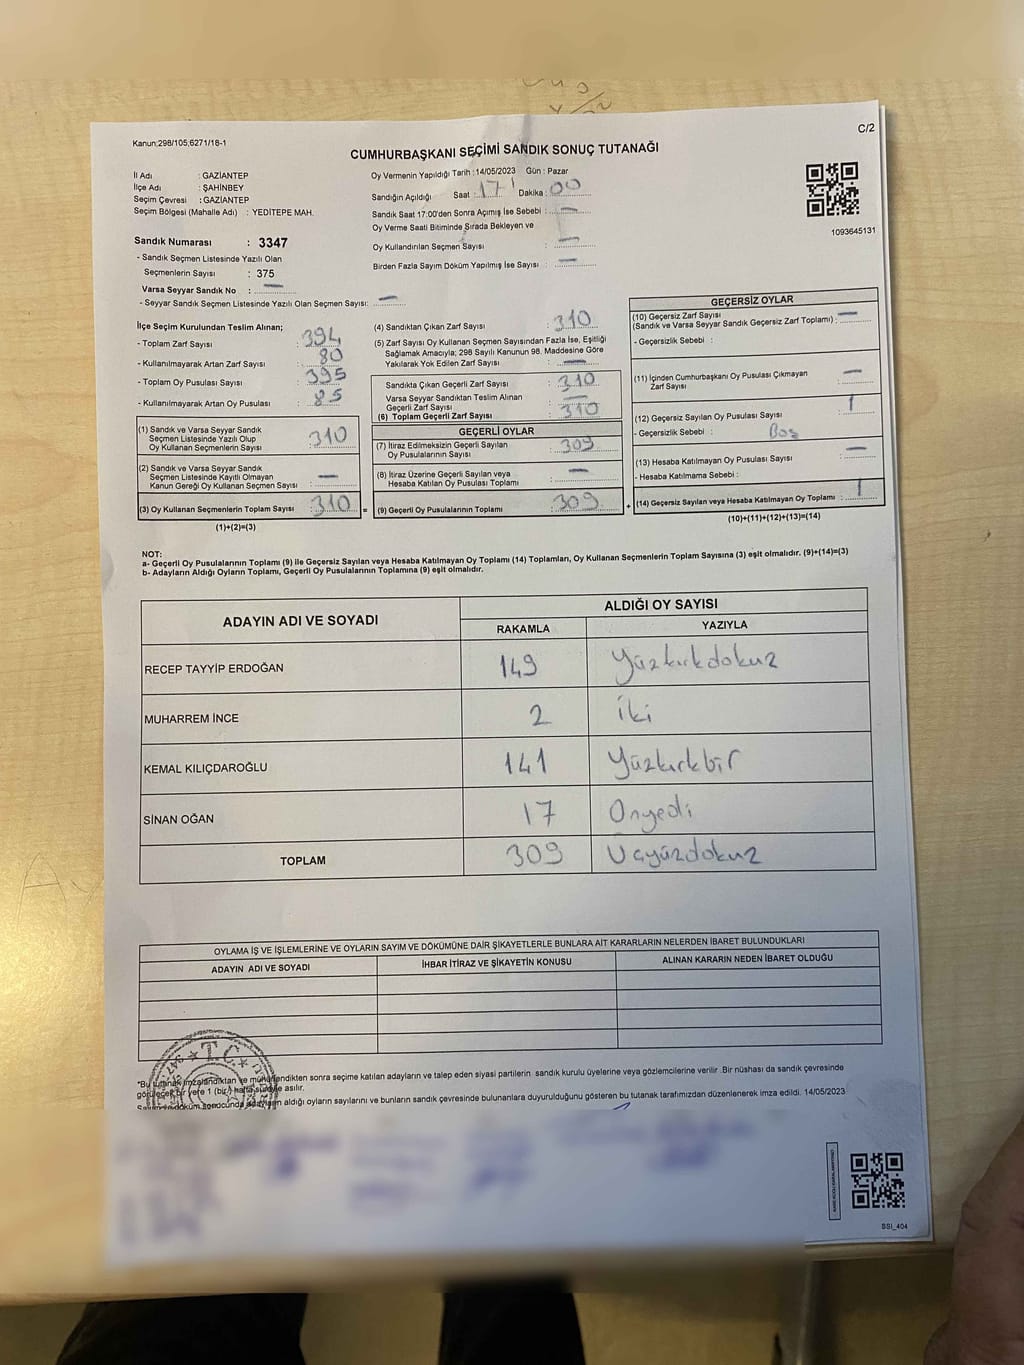 C/2
Kanun:298/105,6271/16-1
CUMHURBAŞKANI SEÇİMİ SANDIK SONUÇ TUTANAĞI
İl Adı : GAZİANTEP
İlçe Adı : ŞAHİNBEY
Seçim Çevresi : GAZİANTEP
Seçim Bölgesi (Mahalle Adı) : YEDİTEPE MAH.
Sandık Numarası : 3347
- Sandık Seçmen Listesinde Yazılı Olan
Seçmenlerin Sayısı : 375
Varsa Seyyar Sandık No : —
- Seyyar Sandık Seçmen Listesinde Yazılı Olan Seçmen Sayısı: —
Oy Vermenin Yapıldığı Tarih :14/05/2023 Gün : Pazar
Sandığın Açıldığı Saat : 17 Dakika : 00
Sandık Saat 17:00'den Sonra Açımış İse Sebebi : —
Oy Verme Saati Bitiminde Sırada Bekleyen ve
Oy Kullandırılan Seçmen Sayısı : —
Birden Fazla Sayım Döküm Yapılmış İse Sayısı : —
1093645131
İlçe Seçim Kurulundan Teslim Alınan;
- Toplam Zarf Sayısı : 394
- Kullanılmayarak Artan Zarf Sayısı : 80
- Toplam Oy Pusulası Sayısı : 395
- Kullanılmayarak Artan Oy Pusulası : 85
(1) Sandık ve Varsa Seyyar Sandık
Seçmen Listesinde Yazılı Olup
Oy Kullanan Seçmenlerin Sayısı : 310
(2) Sandık ve Varsa Seyyar Sandık
Seçmen Listesinde Kayıtlı Olmayan
Kanun Gereği Oy Kullanan Seçmen Sayısı : —
(3) Oy Kullanan Seçmenlerin Toplam Sayısı : 310
(1)+(2)=(3)
(4) Sandıktan Çıkan Zarf Sayısı : 310
(5) Zarf Sayısı Oy Kullanan Seçmen Sayısından Fazla İse, Eşitliği
Sağlamak Amacıyla; 298 Sayılı Kanunun 98. Maddesine Göre
Yakılarak Yok Edilen Zarf Sayısı : —
Sandıkta Çıkan Geçerli Zarf Sayısı : 310
Varsa Seyyar Sandıktan Teslim Alınan
Geçerli Zarf Sayısı : —
(6) Toplam Geçerli Zarf Sayısı : 310
=
GEÇERLİ OYLAR
(7) İtiraz Edilmeksizin Geçerli Sayılan
Oy Pusulalarının Sayısı : 309
(8) İtiraz Üzerine Geçerli Sayılan veya
Hesaba Katılan Oy Pusulası Toplamı : —
(9) Geçerli Oy Pusulalarının Toplamı : 309
+
GEÇERSİZ OYLAR
(10) Geçersiz Zarf Sayısı
(Sandık ve Varsa Seyyar Sandık Geçersiz Zarf Toplamı) : —
- Geçersizlik Sebebi :
(11) İçinden Cumhurbaşkanı Oy Pusulası Çıkmayan
Zarf Sayısı : —
(12) Geçersiz Sayılan Oy Pusulası Sayısı : 1
- Geçersizlik Sebebi : Boş
(13) Hesaba Katılmayan Oy Pusulası Sayısı : —
- Hesaba Katılmama Sebebi :
(14) Geçersiz Sayılan veya Hesaba Katılmayan Oy Toplamı : 1
(10)+(11)+(12)+(13)=(14)
NOT:
a- Geçerli Oy Pusulalarının Toplamı (9) ile Geçersiz Sayılan veya Hesaba Katılmayan Oy Toplamı (14) Toplamları, Oy Kullanan Seçmenlerin Toplam Sayısına (3) eşit olmalıdır. (9)+(14)=(3)
b- Adayların Aldığı Oyların Toplamı, Geçerli Oy Pusulalarının Toplamına (9) eşit olmalıdır.
ADAYIN ADI VE SOYADI ALDIĞI OY SAYISI
RAKAMLA YAZIYLA
RECEP TAYYİP ERDOĞAN 149 Yüzkırkdokuz
MUHARREM İNCE 2 İki
KEMAL KILIÇDAROĞLU 141 Yüzkırkbir
SİNAN OĞAN 17 Onyedi
TOPLAM 309 Üçyüzdokuz
OYLAMA İŞ VE İŞLEMLERİNE VE OYLARIN SAYIM VE DÖKÜMÜNE DAİR ŞİKAYETLERLE BUNLARA AİT KARARLARIN NELERDEN İBARET BULUNDUKLARI
ADAYIN ADI VE SOYADI İHBAR İTİRAZ VE ŞİKAYETİN KONUSU ALINAN KARARIN NEDEN İBARET OLDUĞU
T.C.
*Bu tutanak imzalandıktan ve mühürlendikten sonra seçime katılan adayların ve talep eden siyasi partilerin sandık kurulu üyelerine veya gözlemcilerine verilir .Bir nüshası da sandık çevresinde
görülecek bir yere 1 (bir) hafta süreyle asılır.
Sayım ve döküm sonucunda adayların aldığı oyların sayılarını ve bunların sandık çevresinde bulunanlara duyurulduğunu gösteren bu tutanak tarafımızdan düzenlenerek imza edildi. 14/05/2023
SSI_404